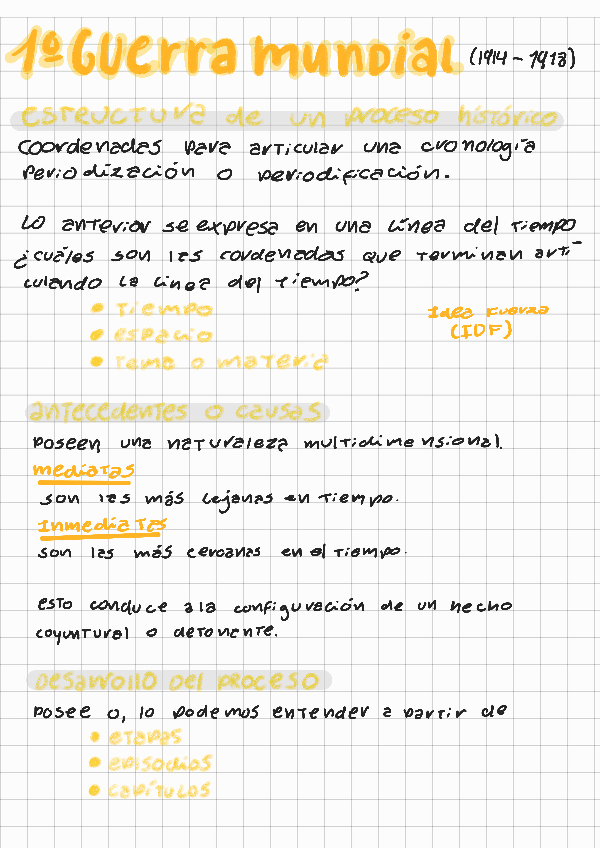 1º Guerra mundial (1914 - 1918)
estructura de un proceso histórico
coordenadas para articular una cronología
periodización o periodificación.
Lo anterior se expresa en una línea del tiempo
¿cuáles son las cordenadas que terminan arti-
culando la línea del tiempo?
• tiempo
• espacio
• tema o materia
Idea Fuerza
(IDF)
antecedentes o causas
poseen una naturaleza multidimensional.
mediatas
son las más lejanas en tiempo.
Inmediatas
son las más cercanas en el tiempo.
esto conduce a la configuración de un hecho
coyuntural o detonente.
Desarrollo del proceso
posee o, lo podemos entender a partir de
• etapas
• episodios
• capítulos